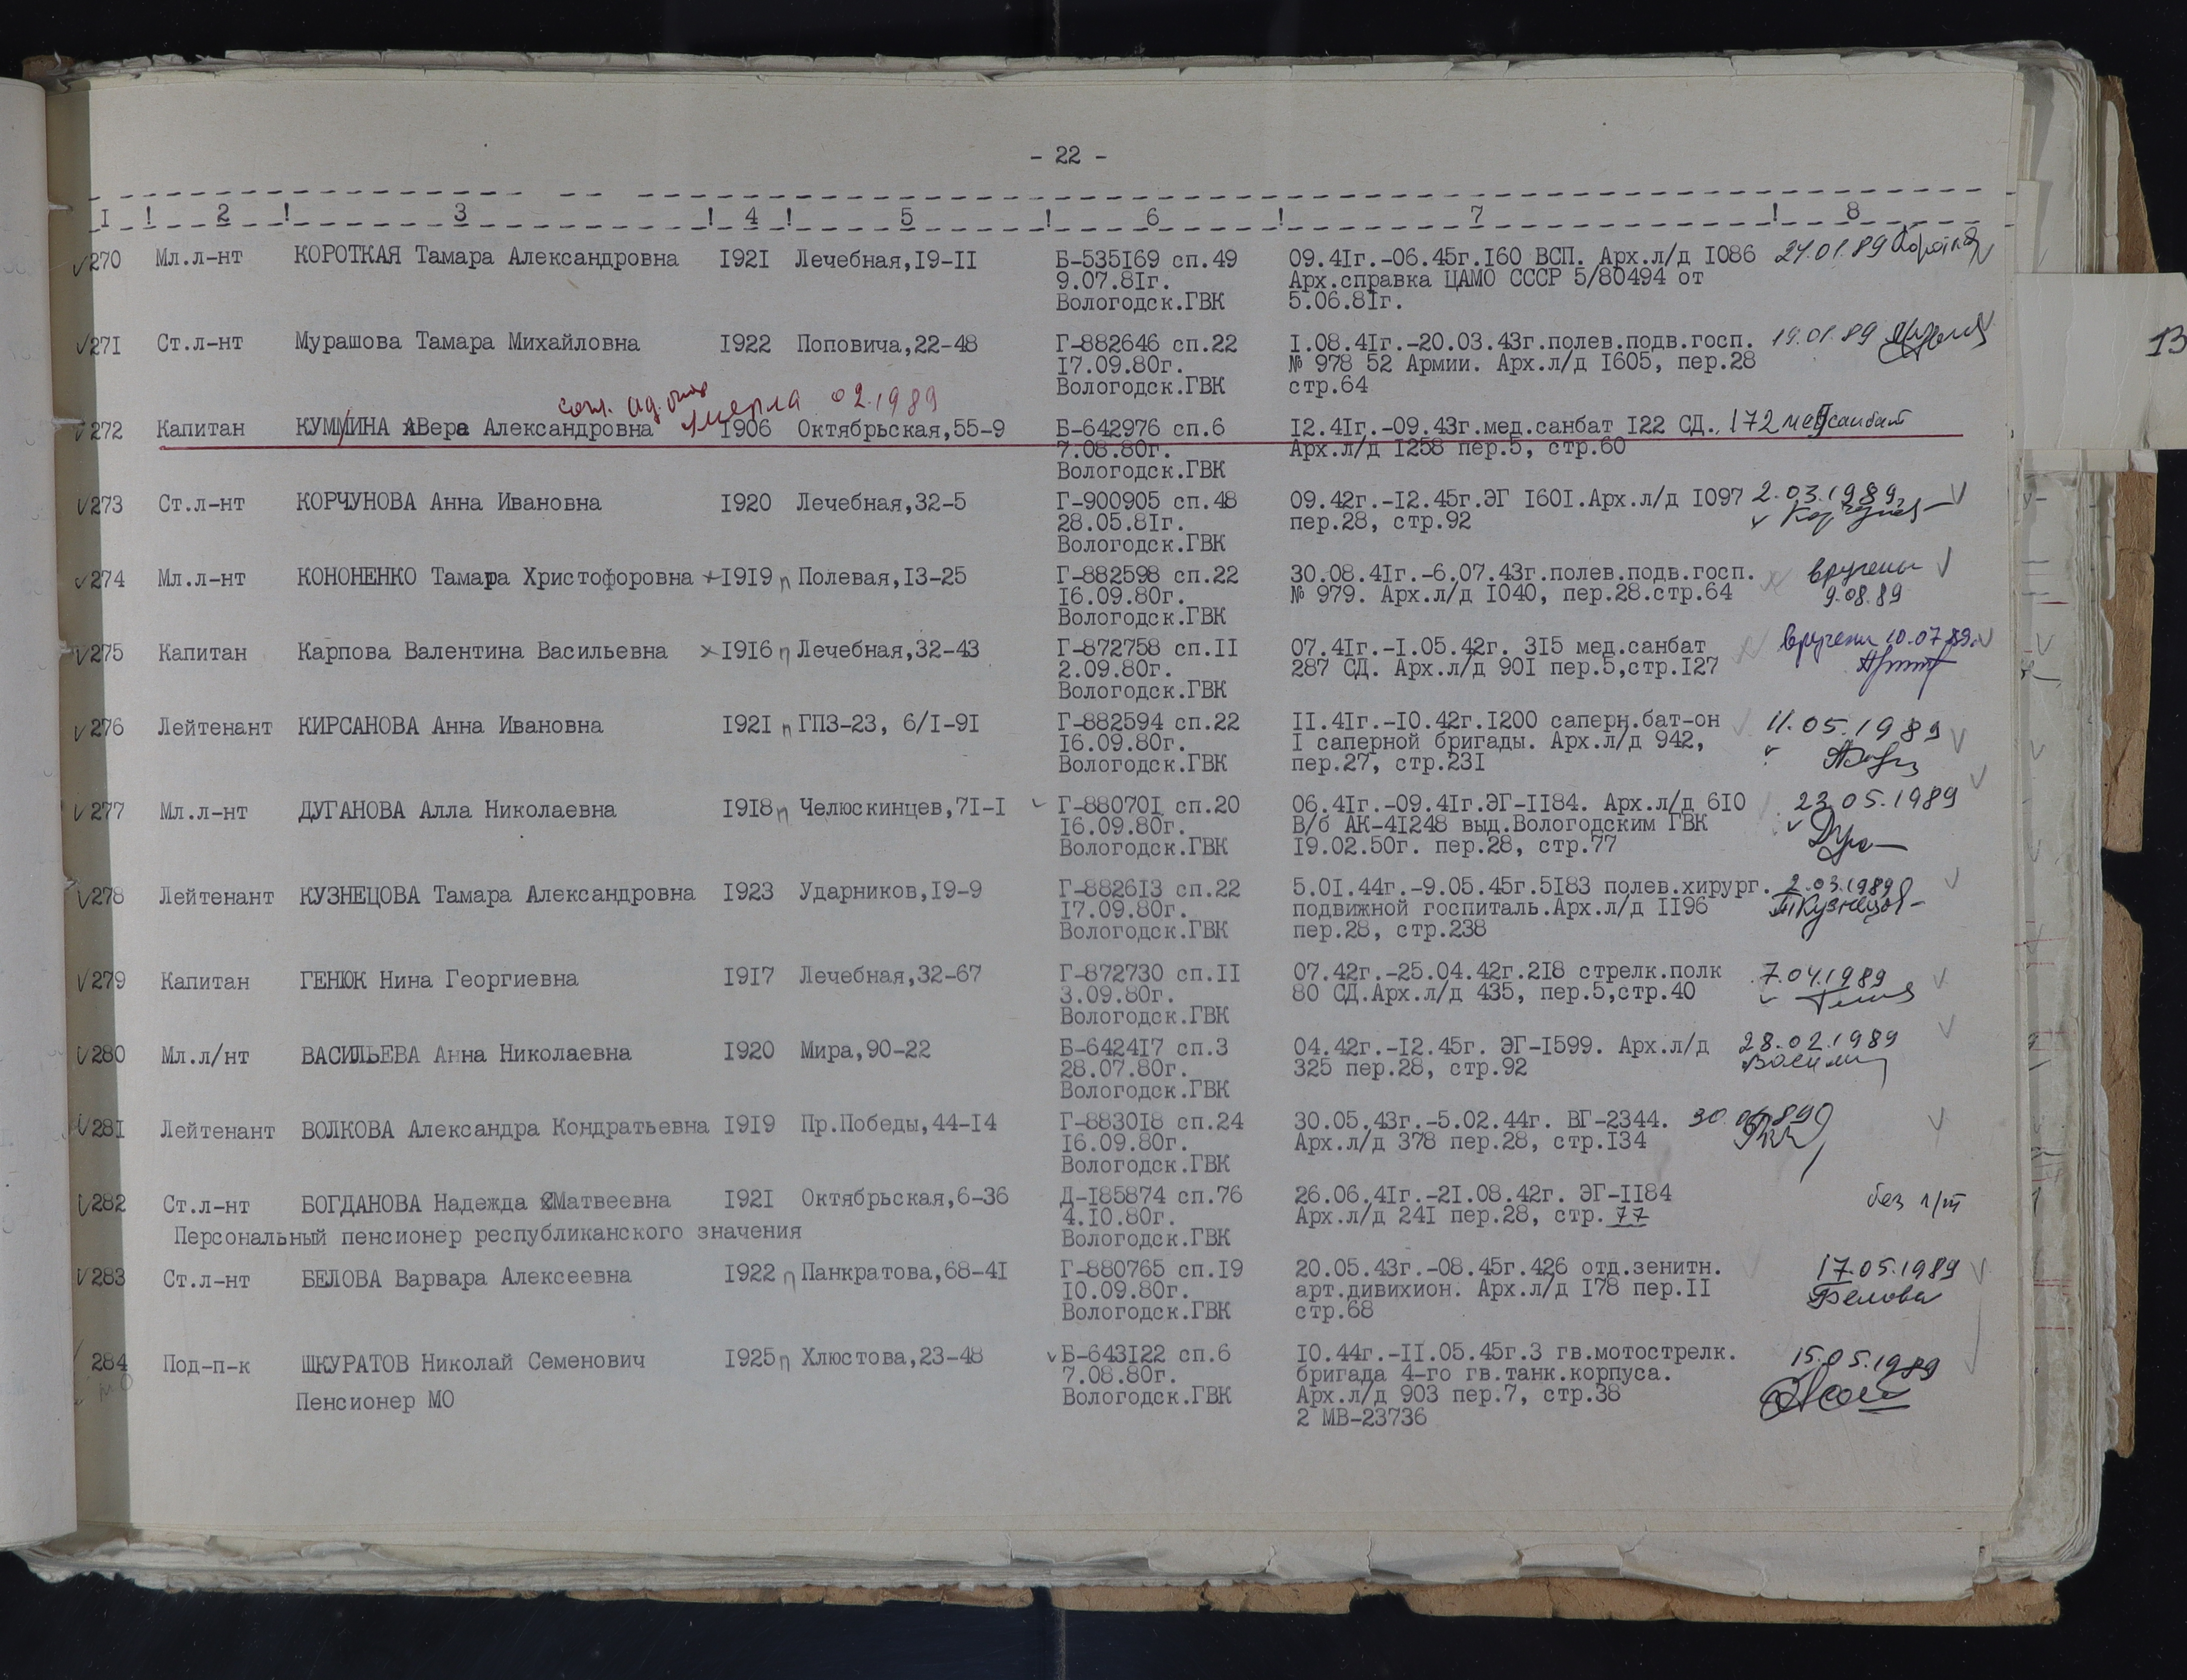 - 22 -
I ! 2 ! 3 ! 4 ! 5 ! 6 ! 7 ! 8
270 Мл.л-нт КОРОТКАЯ Тамара Александровна I92I Лечебная,I9-II Б-535I69 сп.49 09.4Iг.-06.45г.I60 ВСП. Арх.л/д I086 24.01.89
9.07.8Iг. Арх.справка ЦАМО СССР 5/80494 от
Вологодск.ГВК 5.06.8Iг.
27I Ст.л-нт Мурашова Тамара Михайловна I922 Поповича,22-48 Г-882646 сп.22 I.08.4Iг.-20.03.43г.полев.подв.госп. 19.01.89
I7.09.80г. № 978 52 Армии. Арх.л/д I605, пер.28
Вологодск.ГВК стр.64
умерла 02.1989
272 Капитан КУММИНА Вера Александровна I906 Октябрьская,55-9 Б-642976 сп.6 I2.4Iг.-09.43г.мед.санбат I22 СД. 172 медсанбат
7.08.80г. Арх.л/д I258 пер.5, стр.60
Вологодск.ГВК
273 Ст.л-нт КОРЧУНОВА Анна Ивановна I920 Лечебная,32-5 Г-900905 сп.48 09.42г.-I2.45г.ЭГ I60I.Арх.л/д I097 2.03.1989
28.05.8Iг. пер.28, стр.92
Вологодск.ГВК
274 Мл.л-нт КОНОНЕНКО Тамара Христофоровна I9I9 п Полевая,I3-25 Г-882598 сп.22 30.08.4Iг.-6.07.43г.полев.подв.госп. вручены
I6.09.80г. № 979. Арх.л/д I040, пер.28.стр.64 9.08.89
Вологодск.ГВК
275 Капитан Карпова Валентина Васильевна I9I6 п Лечебная,32-43 Г-872758 сп.II 07.4Iг.-I.05.42г. 3I5 мед.санбат вручены 10.07.89.
2.09.80г. 287 СД. Арх.л/д 90I пер.5,стр.I27
Вологодск.ГВК
276 Лейтенант КИРСАНОВА Анна Ивановна I92I п ГПЗ-23, 6/I-9I Г-882594 сп.22 II.4Iг.-I0.42г.I200 саперн.бат-он 11.05.1989
I6.09.80г. I саперной бригады. Арх.л/д 942,
Вологодск.ГВК пер.27, стр.23I
277 Мл.л-нт ДУГАНОВА Алла Николаевна I9I8 п Челюскинцев,7I-I Г-88070I сп.20 06.4Iг.-09.4Iг.ЭГ-II84. Арх.л/д 6I0 23.05.1989
I6.09.80г. В/б АК-4I248 выд.Вологодским ГВК
Вологодск.ГВК I9.02.50г. пер.28, стр.77
278 Лейтенант КУЗНЕЦОВА Тамара Александровна I923 Ударников,I9-9 Г-8826I3 сп.22 5.0I.44г.-9.05.45г.5I83 полев.хирург. 2.03.1989
I7.09.80г. подвижной госпиталь.Арх.л/д II96 ТКузнецов
Вологодск.ГВК пер.28, стр.238
279 Капитан ГЕНЮК Нина Георгиевна I9I7 Лечебная,32-67 Г-872730 сп.II 07.42г.-25.04.42г.2I8 стрелк.полк 7.04.1989
3.09.80г. 80 СД.Арх.л/д 435, пер.5,стр.40
Вологодск.ГВК
280 Мл.л/нт ВАСИЛЬЕВА Анна Николаевна I920 Мира,90-22 Б-6424I7 сп.3 04.42г.-I2.45г. ЭГ-I599. Арх.л/д 28.02.1989
28.07.80г. 325 пер.28, стр.92
Вологодск.ГВК
28I Лейтенант ВОЛКОВА Александра Кондратьевна I9I9 Пр.Победы,44-I4 Г-8830I8 сп.24 30.05.43г.-5.02.44г. ВГ-2344.
I6.09.80г. Арх.л/д 378 пер.28, стр.I34
Вологодск.ГВК
282 Ст.л-нт БОГДАНОВА Надежда Матвеевна I92I Октябрьская,6-36 Д-I85874 сп.76 26.06.4Iг.-2I.08.42г. ЭГ-II84 без
4.I0.80г. Арх.л/д 24I пер.28, стр.77
Персональный пенсионер республиканского значения Вологодск.ГВК
283 Ст.л-нт БЕЛОВА Варвара Алексеевна I922 п Панкратова,68-4I Г-880765 сп.I9 20.05.43г.-08.45г.426 отд.зенитн. 17.05.1989
I0.09.80г. арт.дивихион. Арх.л/д I78 пер.II Белова
Вологодск.ГВК стр.68
284 Под-п-к ШКУРАТОВ Николай Семенович I925 п Хлюстова,23-48 Б-643I22 сп.6 I0.44г.-II.05.45г.3 гв.мотострелк. 15.05.1989
7.08.80г. бригада 4-го гв.танк.корпуса.
Пенсионер МО Вологодск.ГВК Арх.л/д 903 пер.7, стр.38
2 МВ-23736